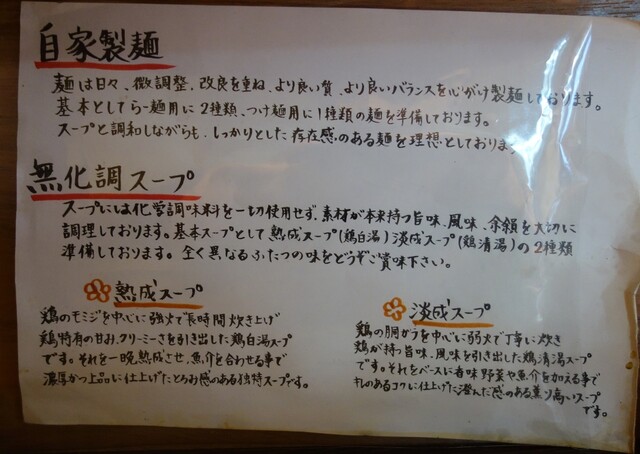 自家製麺
麺は日々、微調整、改良を重ね、より良い質、より良いバランスを心がけ製麺しております。
基本としてらー麺用に2種類、つけ麺用に1種類の麺を準備しております。
スープと調和しながらも、しっかりとした存在感のある麺を理想としております
無化調スープ
スープには化学調味料を一切使用せず、素材が本来持つ旨味、風味、余韻を大切に
調理しております。基本スープとして熟成スープ(鶏白湯)淡成スープ(鶏清湯)の2種類
準備しております。全く異なるふたつの味をどうぞご賞味下さい。
熟成スープ
鶏のモミジを中心に強火で長時間炊き上げ
鶏特有の甘み、クリーミーさを引き出した鶏白湯スープ
です。それを一晩熟成させ、魚介を合わせる事で
濃厚かつ上品に仕上げたとろみ感のある独特スープです。
淡成スープ
鶏の胴がらを中心に弱火で丁寧に炊き
鶏が持つ旨味、風味を引き出した鶏清湯スープ
です。それをベースに香味野菜や魚介を加える事で
キレのあるコクに仕上げた澄んだ感のある薫り高いスープ
です。